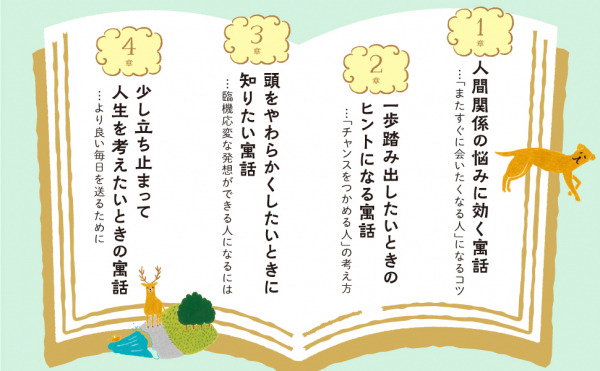 1
章
人間関係の悩みに効く寓話
…「またすぐに会いたくなる人」になるコツ
2
章
一歩踏み出したいときの
ヒントになる寓話
…「チャンスをつかめる人」の考え方
3
章
頭をやわらかくしたいときに
知りたい寓話
…臨機応変な発想ができる人になるには
4
章
少し立ち止まって
人生を考えたいときの寓話
…より良い毎日を送るために